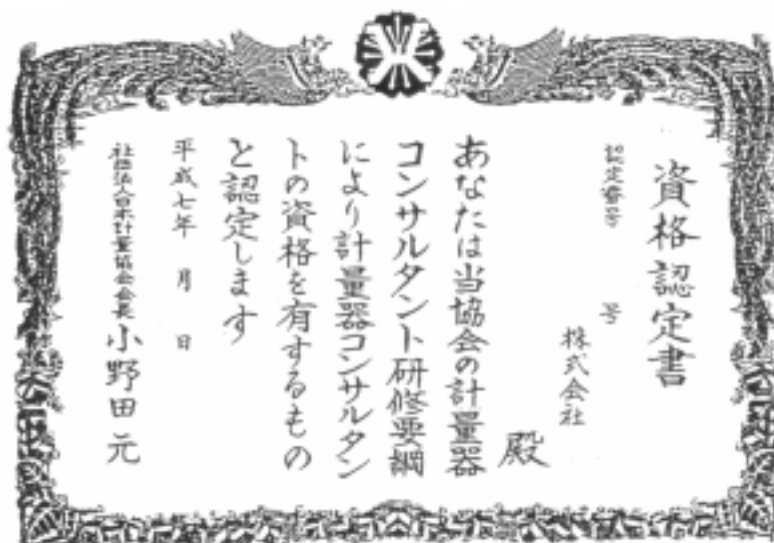 資格認定書
認定番号 号
株式会社
殿
あなたは当協会の計量器
コンサルタント研修要綱
により計量器コンサルタン
トの資格を有するもの
と認定します
平成七年 月 日
社団法人日本計量協会会長 小野田 元